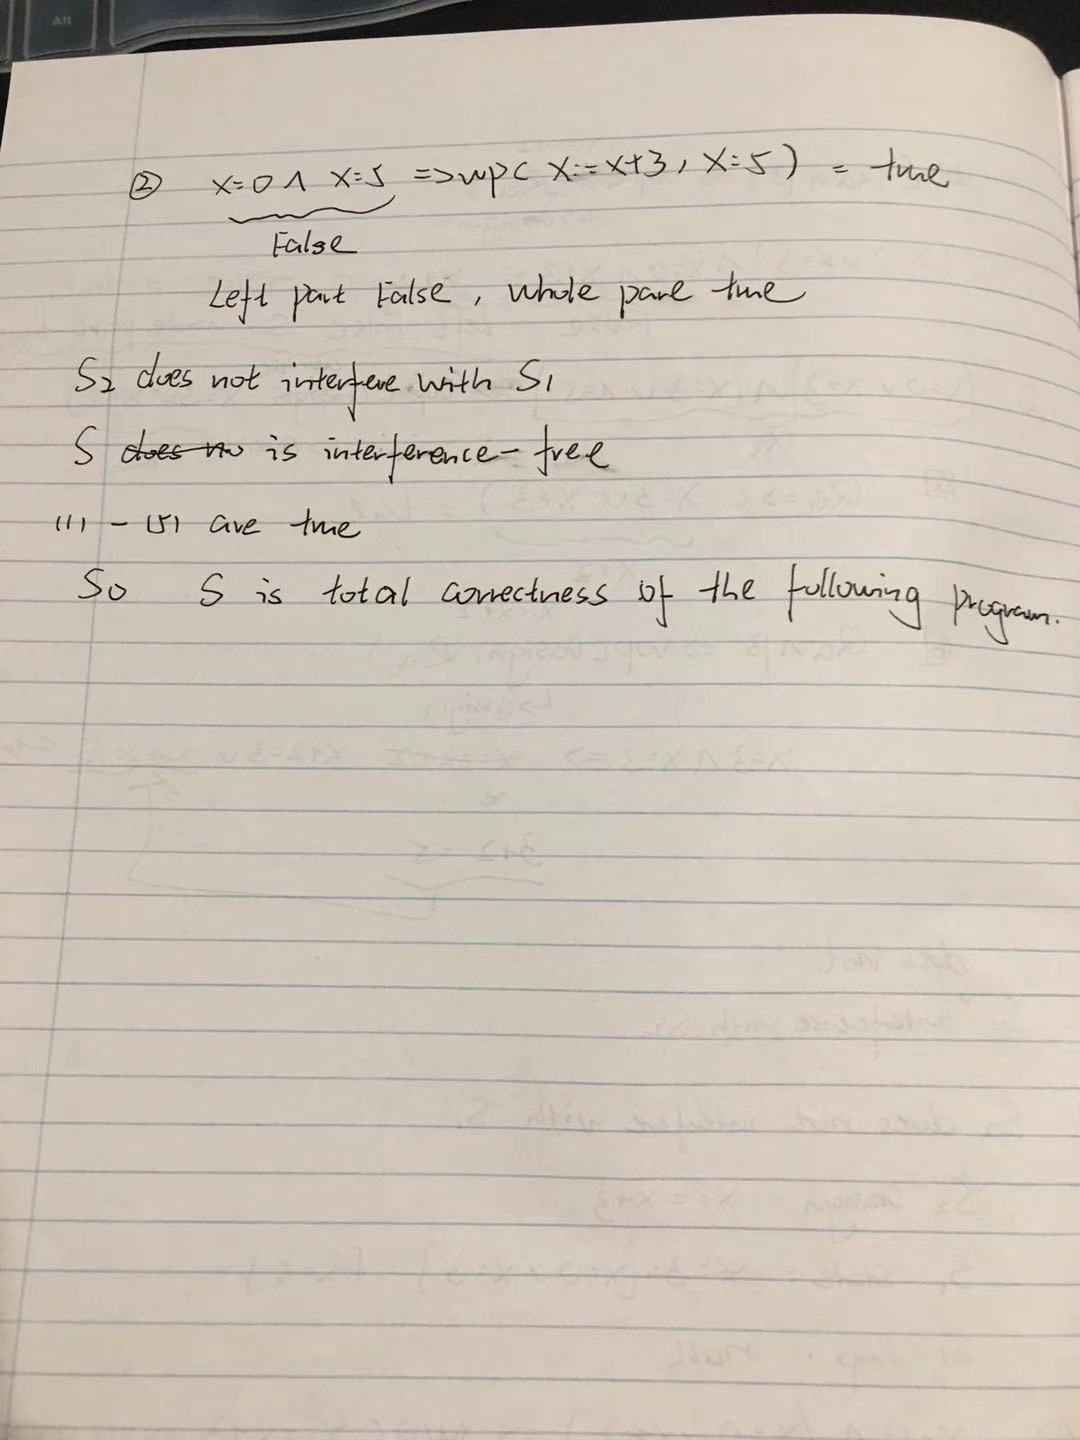 ② x=0 ∧ x=5 => wp( x:=x+3, x=5) = true
False
Left part False, whole pare true
S2 does not interfere with S1
S does no is interference-free
(1) - (5) are true
So S is total correctness of the following program.